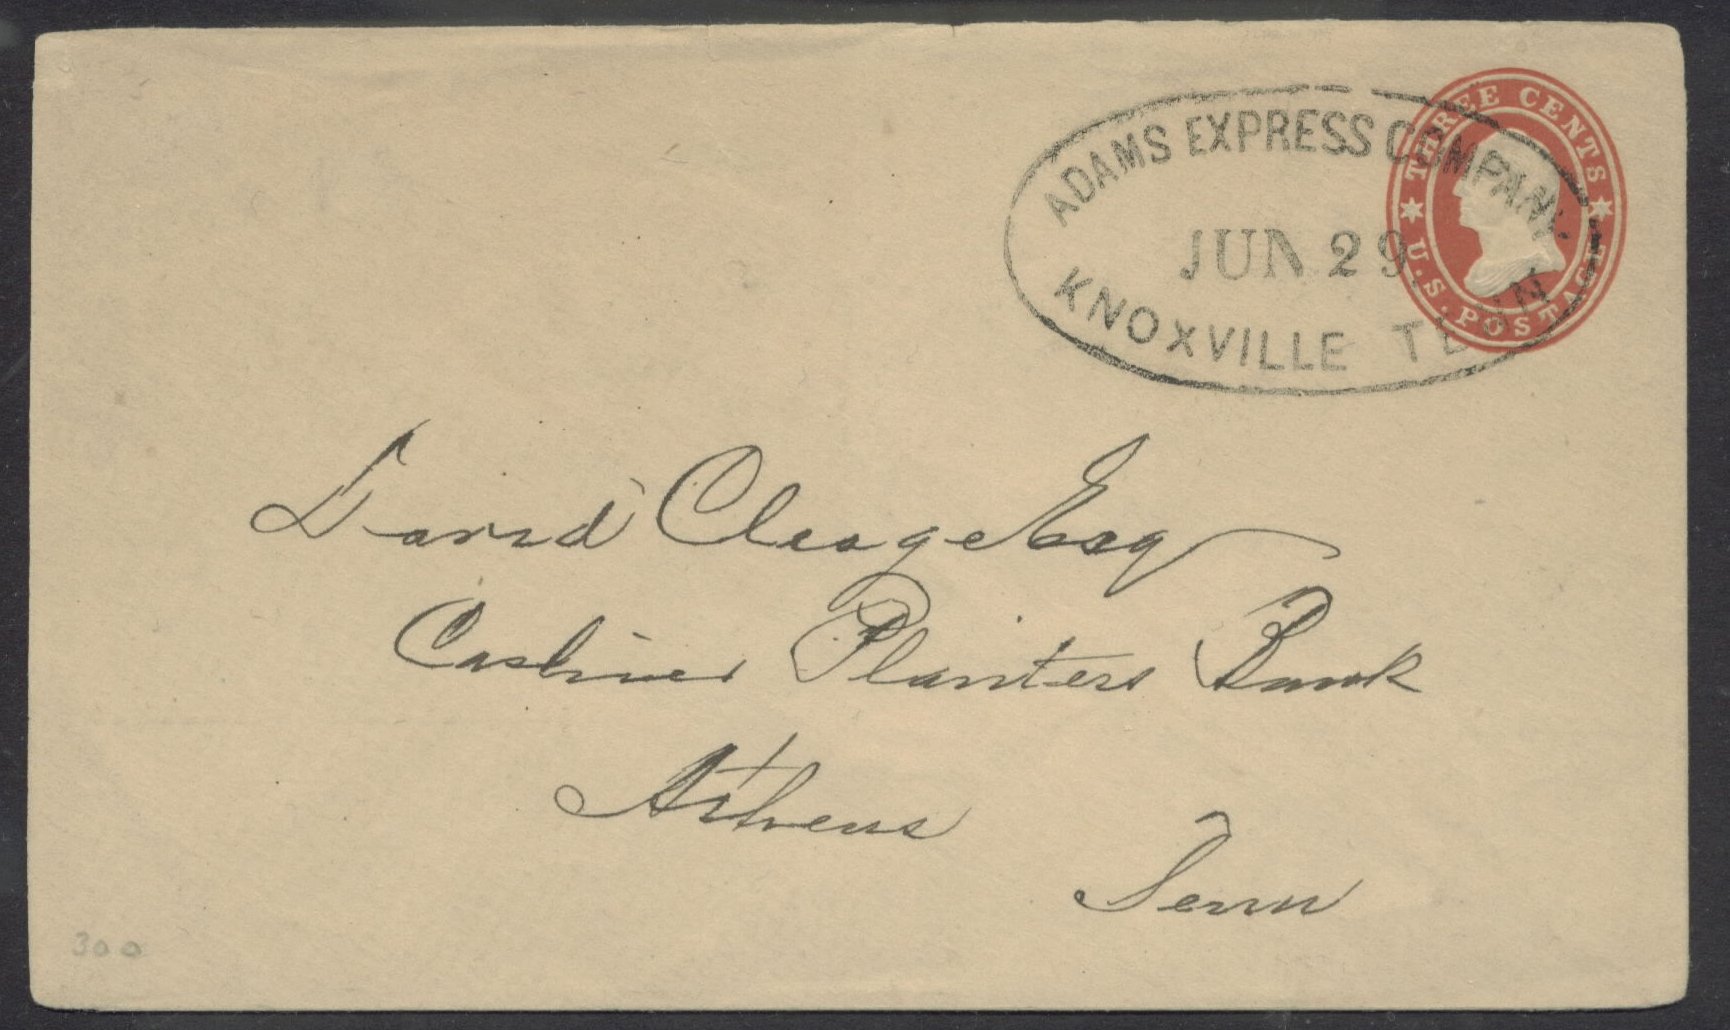 THREE CENTS
U.S. POSTAGE
ADAMS EXPRESS COMPANY
JUN 29
KNOXVILLE TENN
David Cleage Esq
Cashier Planters Bank
Athens
Tenn
300